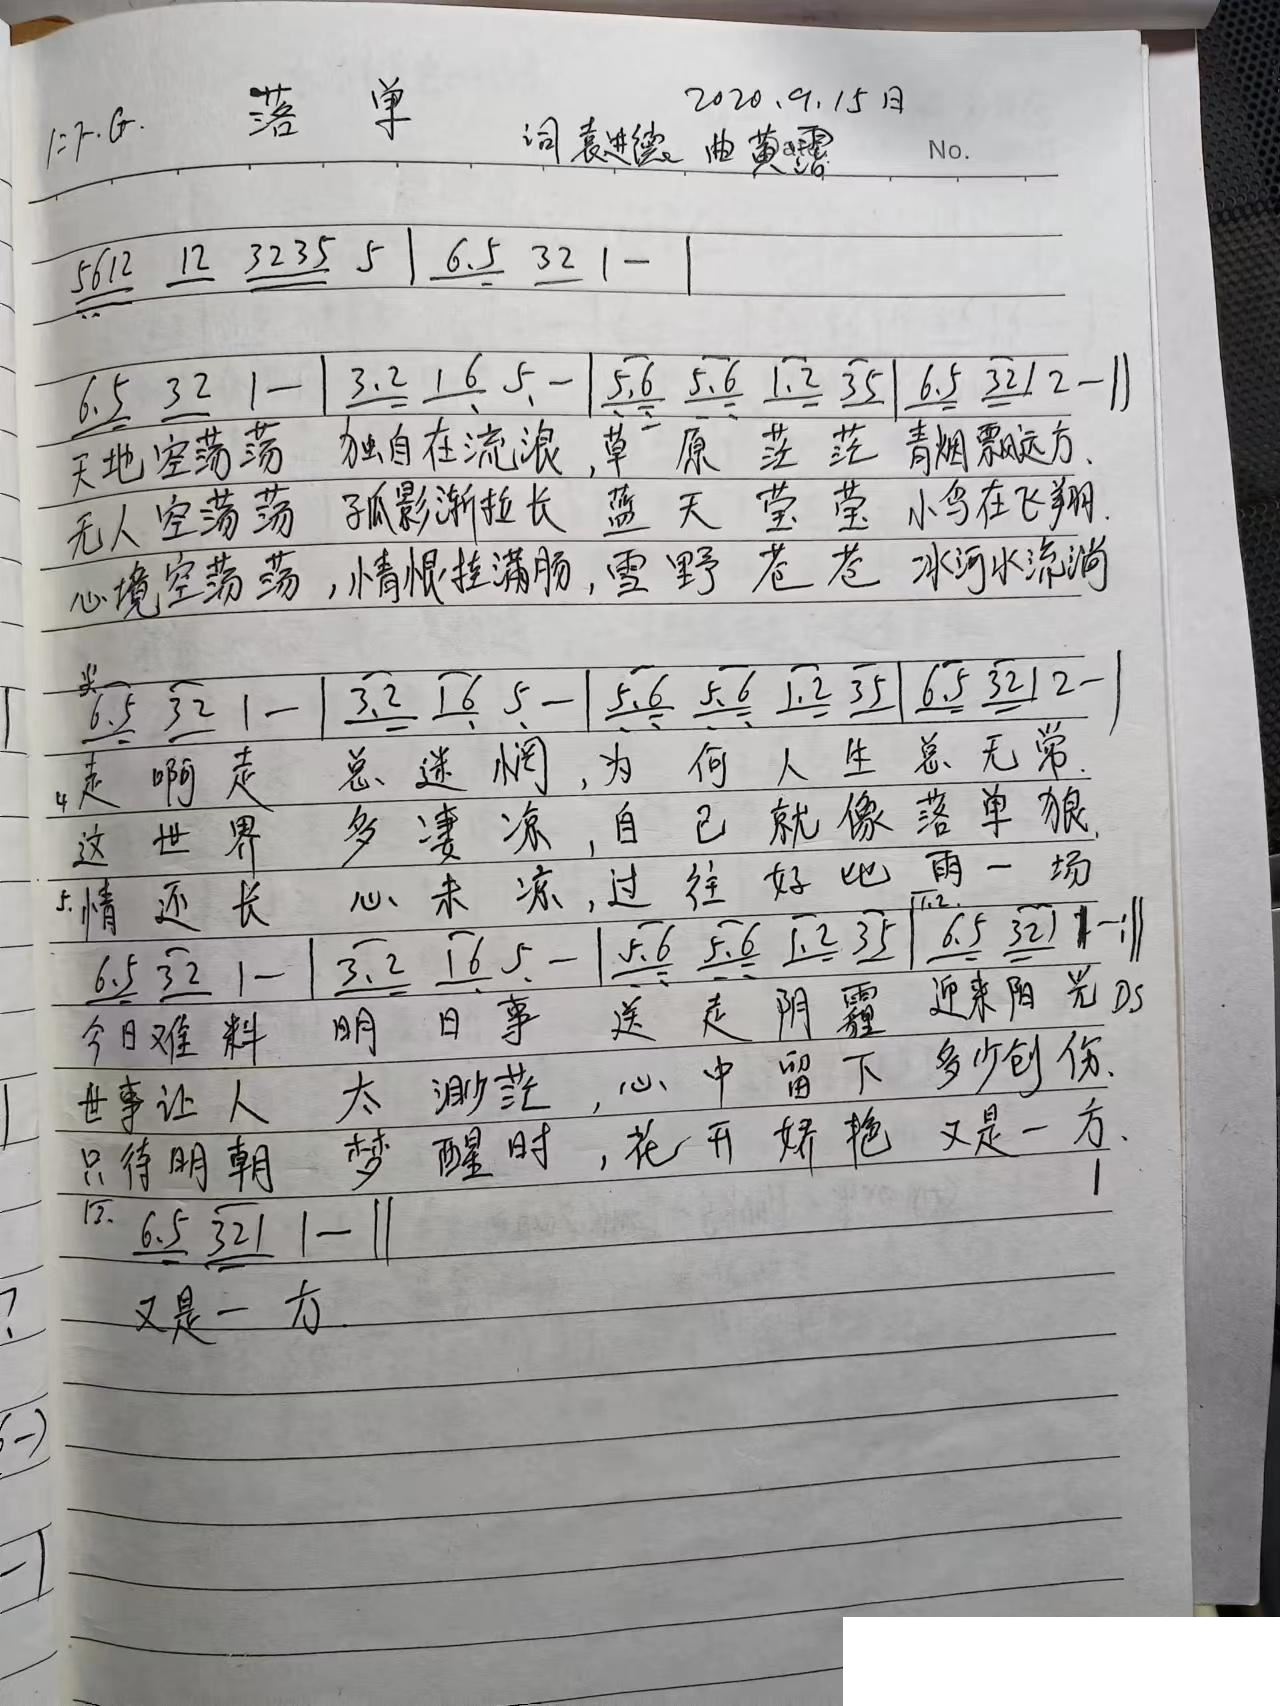 1=F.G. 落单 2020.9.15日
词袁进德 曲黄露 No.
5612 12 3235 5 | 6.5 32 1 - |
6.5 32 1 - | 3.2 16 5. - | 5.6 5.6 1.2 35 | 6.5 321 2 - ||
天地空荡荡 独自在流浪,草原茫茫 青烟飘远方.
无人空荡荡 孤影渐拉长 蓝天莹莹 小鸟在飞翔.
心境空荡荡,情恨挂满肠,雪野苍苍 冰河水流淌
6.5 32 1 - | 3.2 16 5. - | 5.6 5.6 1.2 35 | 6.5 321 2 - |
走啊走 总迷惘,为何人生总无常.
4 这世界 多凄凉,自己就像落单狼.
5. 情还长 心未凉,过往好比雨一场
1.2.
6.5 32 1 - | 3.2 16 5. - | 5.6 5.6 1.2 35 | 6.5 321 1 - :||
今日难料 明日事 送走阴霾 迎来阳光 DS
世事让人 太渺茫,心中留下 多少创伤.
只待明朝 梦醒时,花开娇艳 又是一方.
13. 6.5 321 1 - ||
又是一方.